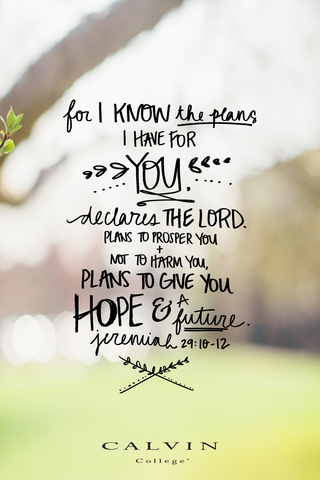 for I KNOW the plans
I HAVE FOR
YOU.
declares THE LORD.
PLANS TO PROSPER YOU
+
NOT TO HARM YOU,
PLANS TO GIVE YOU
HOPE & A future.
jeremiah 29:10-12
CALVIN
College